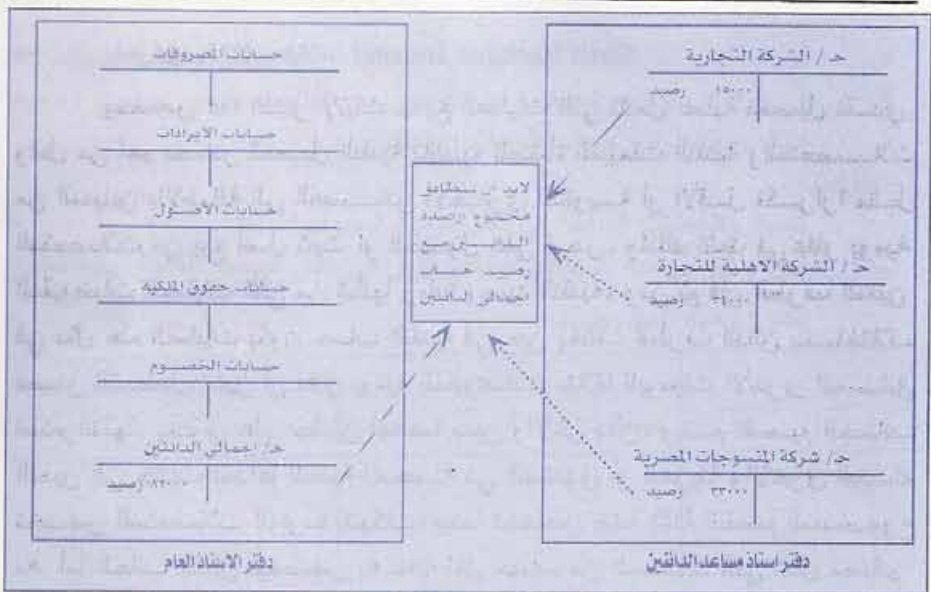 حـ / الشركة التجارية
١٥٠٠٠ رصيد
حـ / الشركة الاهلية للتجارة
رصيد
حـ / شركة المنسوجات المصرية
٣٣٠٠٠ رصيد
دفتر استاذ مساعد الدائنين
لابد ان يتطابق
مجموع ارصدة
رصيد حساب
اجمالى الدائنين
حسابات المصروفات
حسابات الايرادات
حسابات الاصول
حسابات حقوق الملكيه
حسابات الخصوم
حـ / اجمالى الدائنين
رصيد
دفتر الاستاذ العام